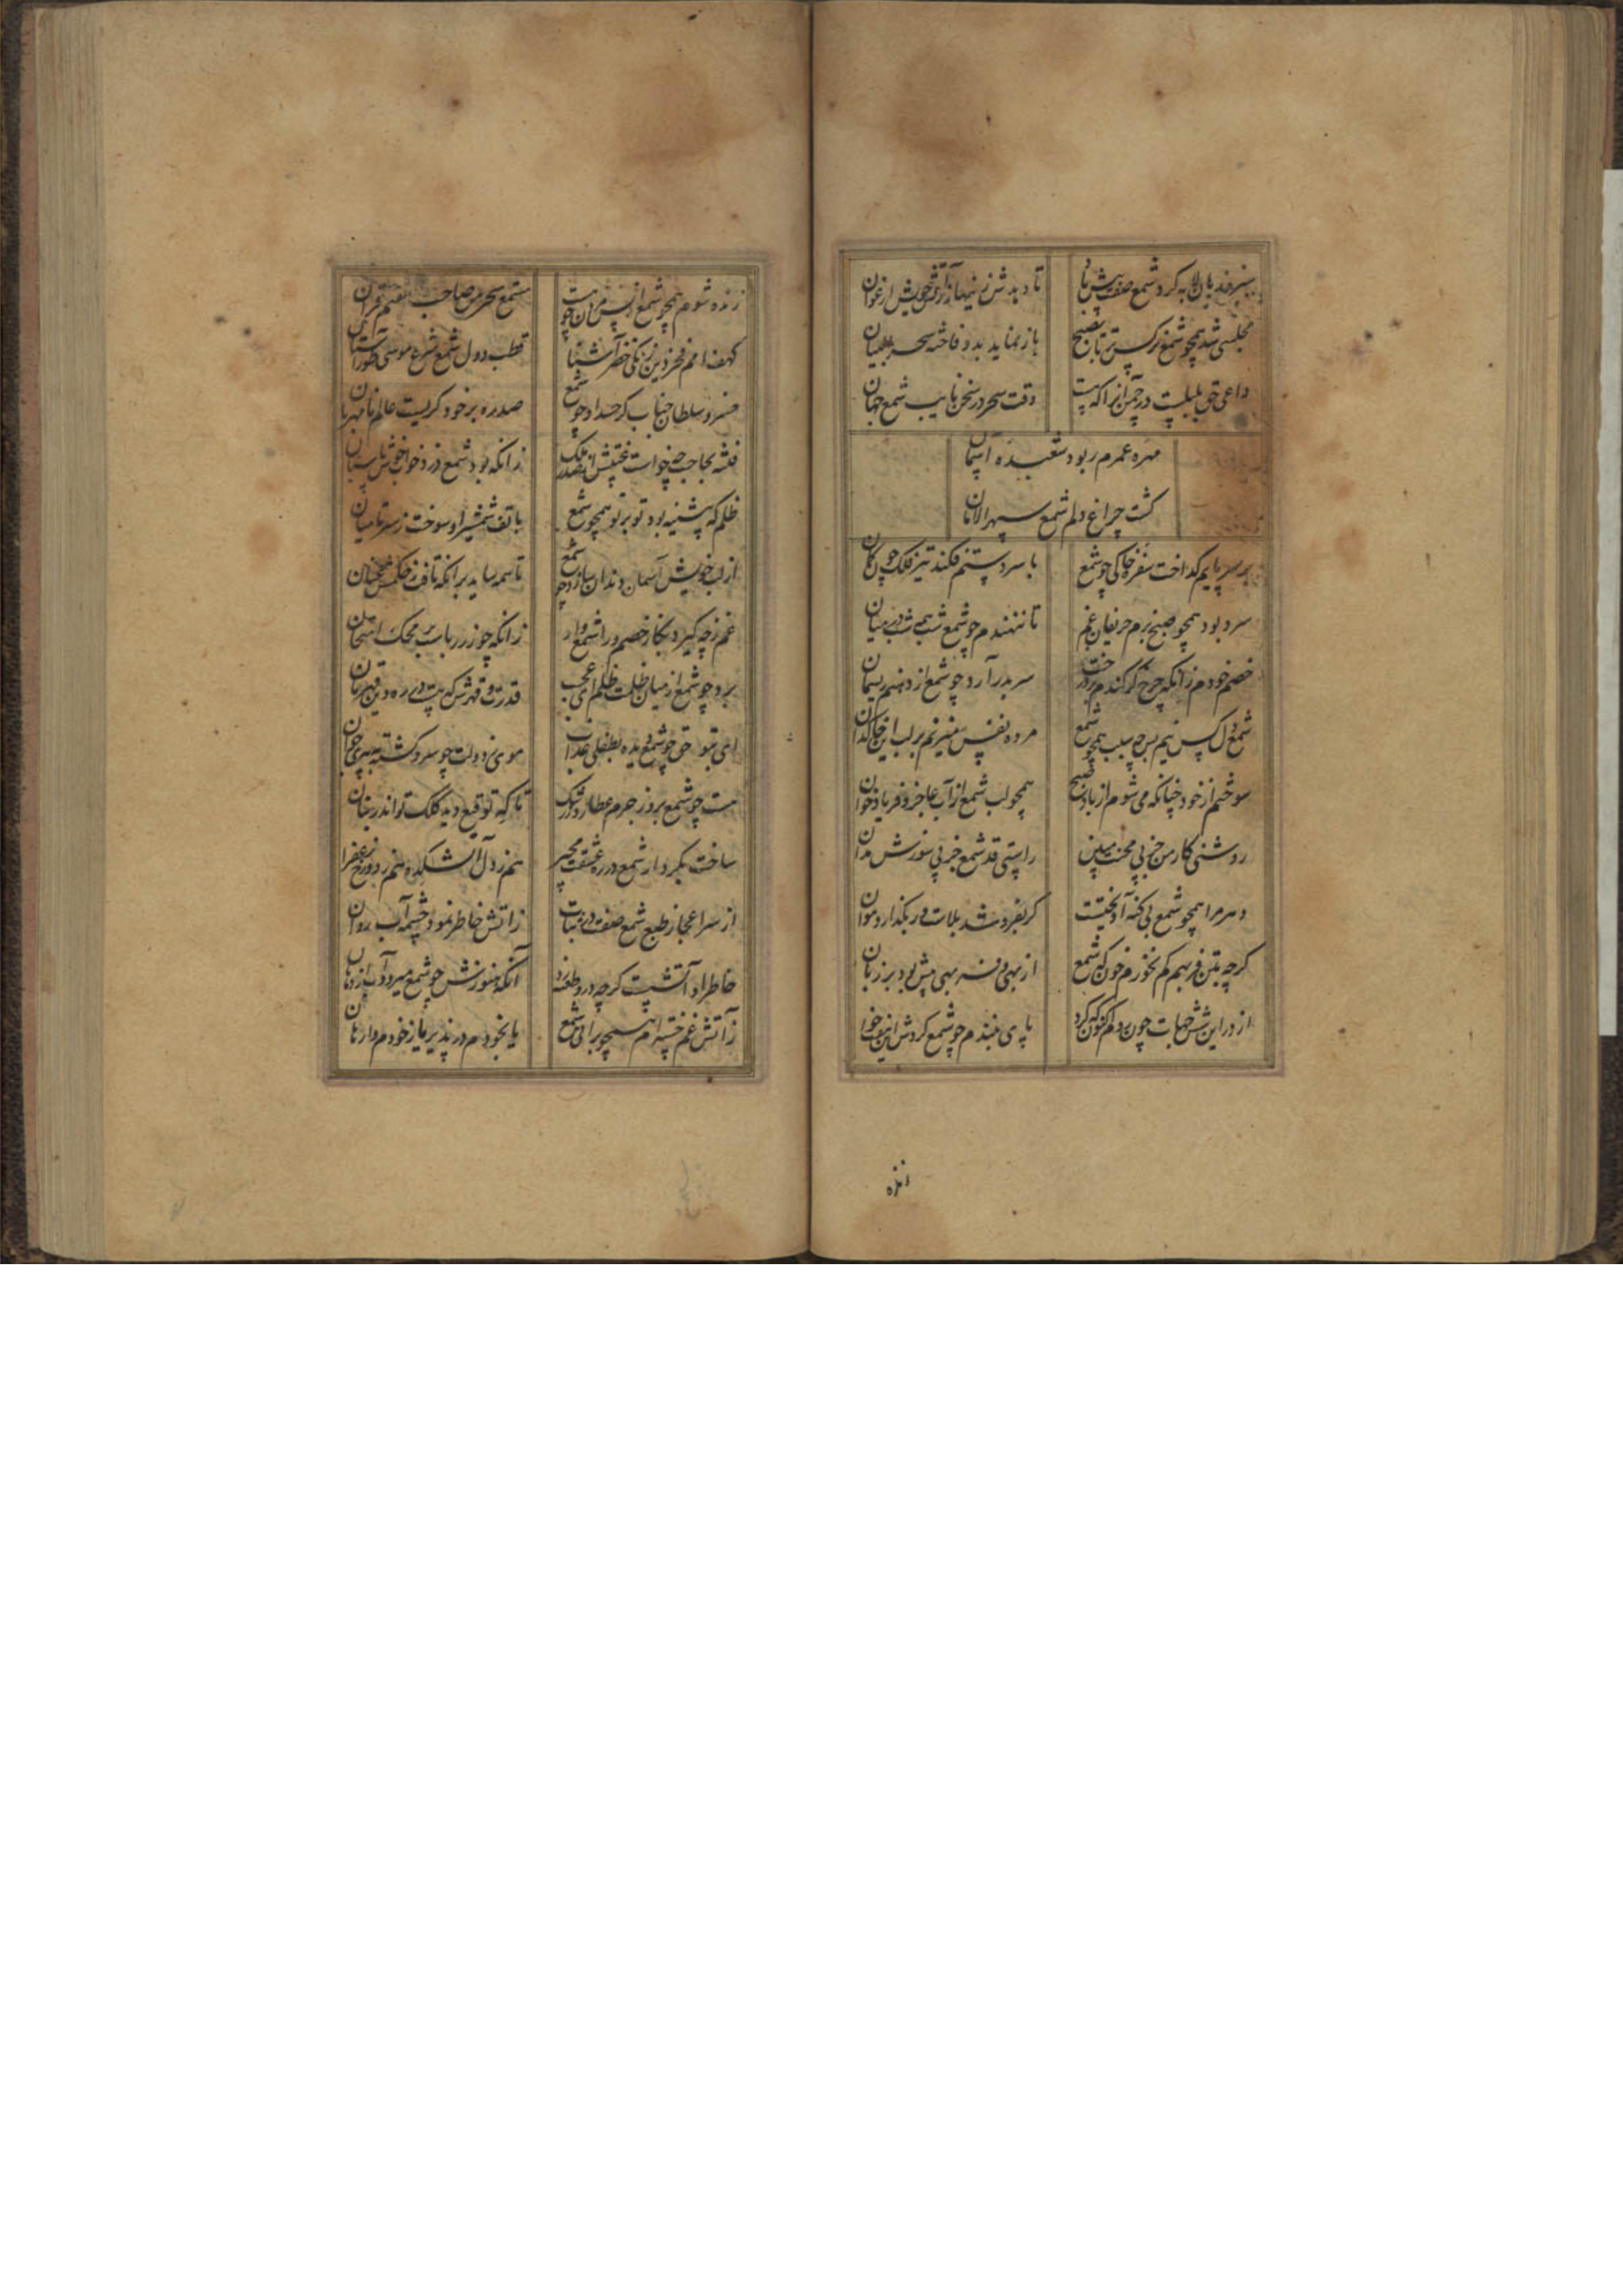 سبزه زند پای لابه کرد شمع صفت پیش باد تا دید شر زینهار از تف خویش ارغوان
مجلسی شد همچو شمع نرگس تر تا بصبح باز نماید بدو فاخته سحر بیان
داعی حق بلبلیست در چمن آنرا که هست وقت سحر در سخن نایب شمع جهان
مهره عمرم ربود شعبده آسمان
کشت چراغ دلم شمع سپهر الامان
بر سر پایم گداخت سفر خاکی چو شمع با سر دستم فکند تیر فلک چون کمان
سرد بود همچو صبح بزم حریفان غم تا ننهندم چو شمع شب همه شب در میان
خصم خودم زانکه چرخ گر کندم ریز سر بدر آرد چو شمع از دهنم ریسمان
شمع دل کس نیم بس چه سبب همچو شمع مرده نفس میزنم بر لب این خاکدان
سوختم از خود چنانکه می شوم از باد صبح همچو لب شمع از آب عاجز و فریاد خوان
روشنی کار من جز پی محنت مبین راستی قد شمع جز پی سوزش مدان
دهر مرا همچو شمع بی گنه آویختست گر بفروشد بلات ور بگذارد موان
گرچه بتن فربهم کم نخورم خون که شمع از بهی و فربهی پیش بود بر زیان
از در این شش جهات چون بروم کنون که کرد پای ببندم چو شمع گردش این هفتخوان
زنده
زنده شوم همچو شمع از پس مردن چو هست مستمع سحر من صاحب قران
کهف امم فخر دین زنگی خضر آشنا قطب دول شمع شرع موسی طور آستان
خسرو سلطان جناب کز حسد او چو شمع صدره بر خود گریست عالم نامهربان
فتنه بحاجت چه خواست تختش از ملک زانکه بود شمع دزد خواب خوش پاسبان
ظلم که پیشینه بود تو بر تو همچو شمع با تف شمشیر او سوخت ز سر تا میان
از لب خویش آسمان دندان سازد چو شمع تا سمه ساید برانکه تافت ز حکمش عنان
غم زچه گیرد بگاز خصم ورا شمع وار زانکه چو زر نیست محک امتحان
برد چو شمع از میان ظلمت ظلم ای عجب قدرت و قهرش که هست ده ره دین قهرمان
ای بتو حق چو شمع دیده بطفلی عذاب موی ز دولت چو سرو گشته به پیری جوان
هست چو شمع بروز جرم عطارد ز رشک تا که توقیع دید کلک تو اندر بنان
ساخت بکردار شمع در ره عشقت مجیر هم ز دل آتشکده هم ز رخ زعفران
از سر اعجاز طبع شمع صفت در ثبات ز آتش خاطر نمود چشمه آب روان
خاطر او آتشیست گرچه درو طعنه زد آنکه هنوزش چو شمع میرود آب از دهان
ز آتش غم خسته ام همچو بر آتش شمع یا بخودم در پذیر یا ز خودم وا رهان